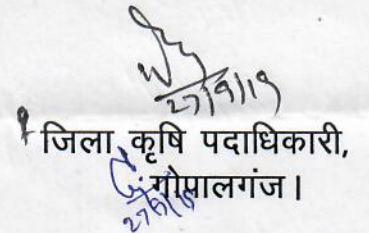 27/9/19
जिला कृषि पदाधिकारी,
गोपालगंज।